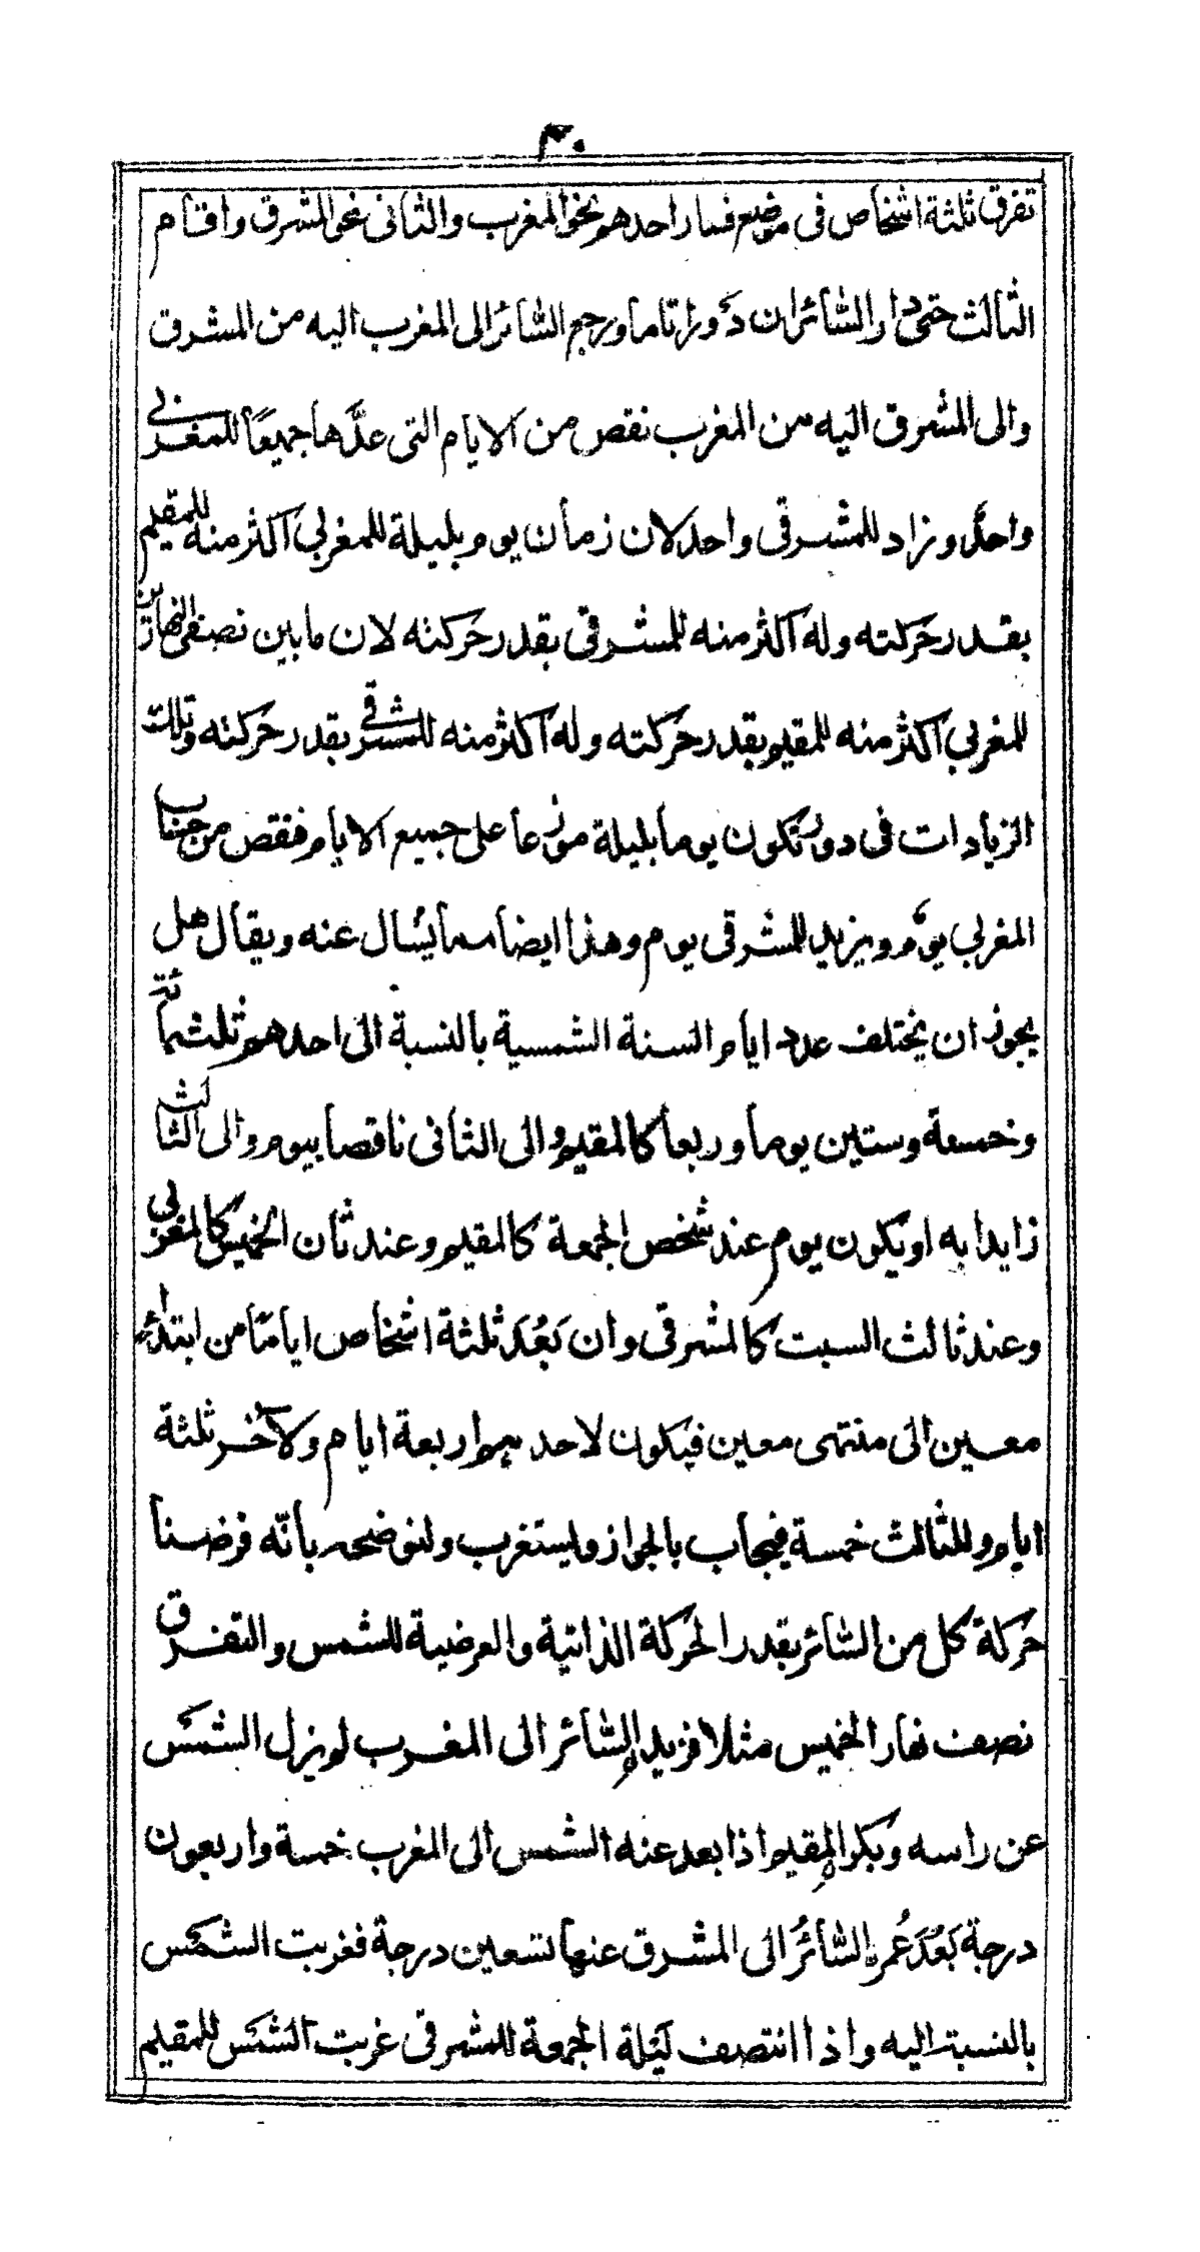 ٣٠
تفرق ثلثة اشخاص فى موضع فسار احدهم نحو المغرب والثانى نحو المشرق واقام
الثالث حتى دار السائران دورا تاما ورجع السائر الى المغرب اليه من المشرق
والى المشرق اليه من المغرب نقص من الايام التى عدّها جميعًا للمغربى
واحدٌ وزاد للمشرقى واحد لان زمان يوم بليلة للمغربى اكثر منه للمقيم
بقدر حركته وله اكثر منه للمشرقى بقدر حركته لان مابين نصفى النهارين
للمغربى اكثر منه للمقيم بقدر حركته وله اكثر منه للمشرقى بقدر حركته وتلك
الزيادات فى دور تكون يوما بليلة موزعا على جميع الايام فنقص من حساب
المغربى يومٌ ويزيد للمشرقى يوم وهذا ايضا مما يُسأل عنه ويقال هل
يجوز ان يختلف عدد ايام السنة الشمسية بالنسبة الى احدهم ثلثمائة
وخمسة وستين يوما وربعا كالمقيم والى الثانى ناقصا بيوم والى الثالث
زايدا به او يكون يوم عند شخص الجمعة كالمقيم وعند ثان الخميس كالمغربى
وعند ثالث السبت كالمشرقى وان يَعُدَّ ثلثة اشخاص اياما من ابتداء
معين الى منتهى معين فيكون لاحدهم اربعة ايام ولآخر ثلثة
ايام وللثالث خمسة فيجاب بالجواز وليستغرب ولنوضحه بانّه فرضنا
حركة كل من السائر بقدر الحركة الذاتية والعرضية للشمس والتفرق
نصف نهار الخميس مثلا فزيد السائر الى المغرب لو يزل الشمس
عن راسه وبكر المقيم اذا بعد عنه الشمس الى المغرب خمسة واربعون
درجة بَعُدَ عُمر السائرُ الى المشرق عنها تسعين درجة فغربت الشمس
بالنسبة اليه واذا انتصف ليلة الجمعة للمشرقى غربت الشمس للمقيم